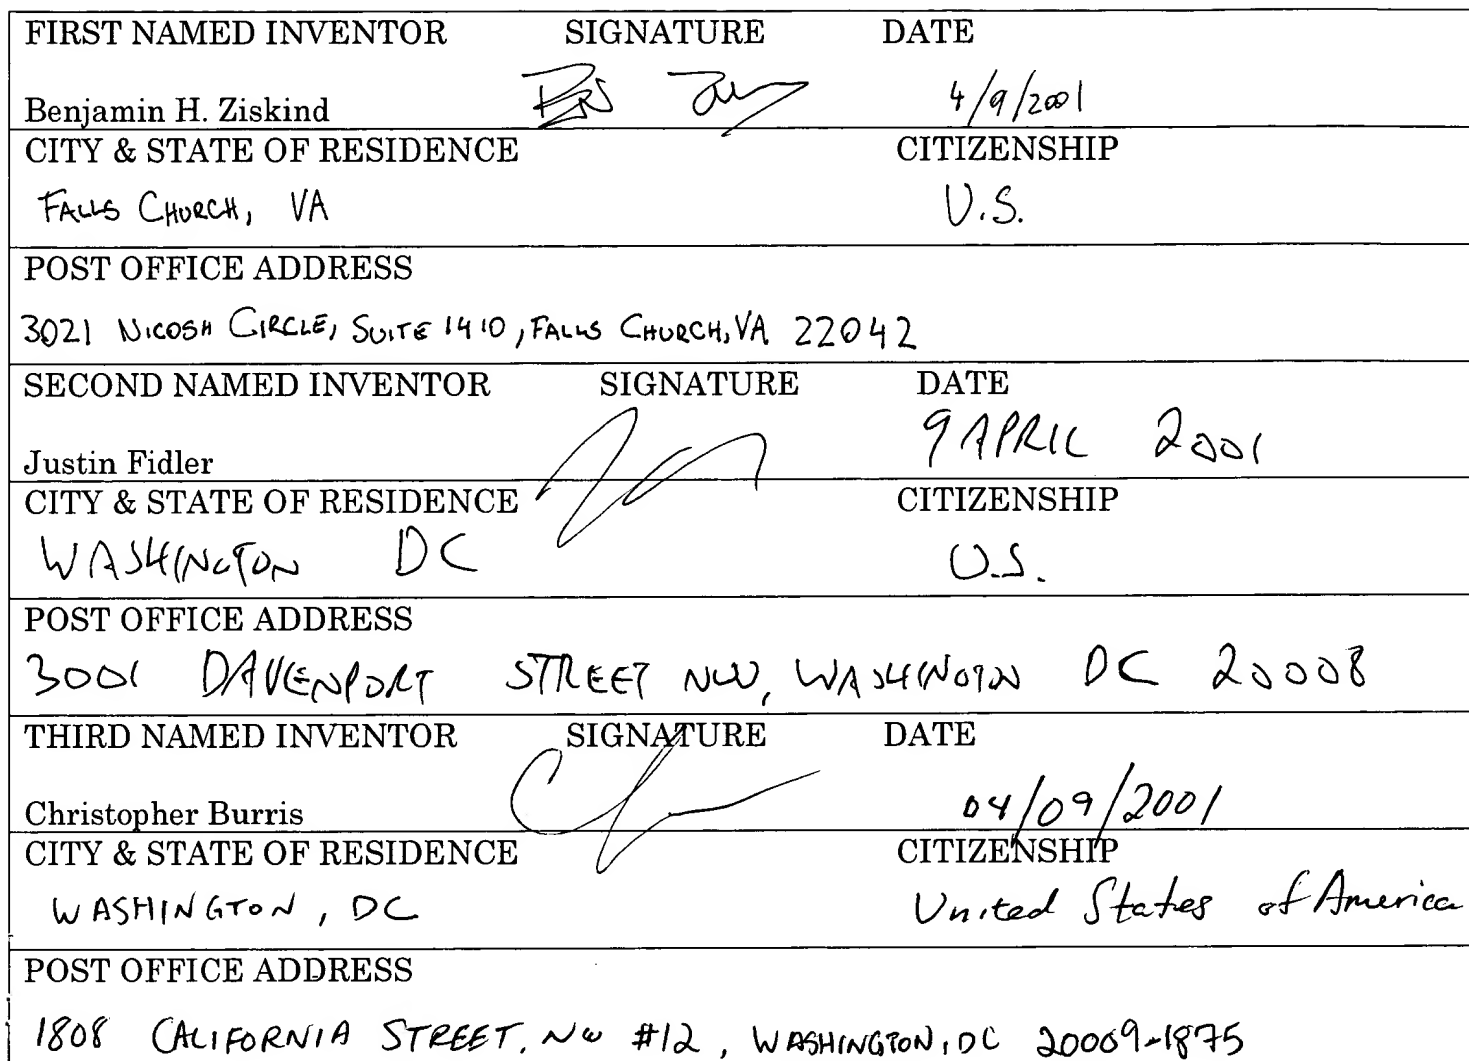 FIRST NAMED INVENTOR SIGNATURE DATE
Benjamin H. Ziskind 4/9/2001
CITY & STATE OF RESIDENCE CITIZENSHIP
FALLS CHURCH, VA U.S.
POST OFFICE ADDRESS
3021 NICOSH CIRCLE, SUITE 1410, FALLS CHURCH, VA 22042
SECOND NAMED INVENTOR SIGNATURE DATE
Justin Fidler 9 APRIL 2001
CITY & STATE OF RESIDENCE CITIZENSHIP
WASHINGTON DC U.S.
POST OFFICE ADDRESS
3001 DAVENPORT STREET NW, WASHINGTON DC 20008
THIRD NAMED INVENTOR SIGNATURE DATE
Christopher Burris 04/09/2001
CITY & STATE OF RESIDENCE CITIZENSHIP
WASHINGTON, DC United States of America
POST OFFICE ADDRESS
1808 CALIFORNIA STREET, NW #12, WASHINGTON, DC 20009-1875